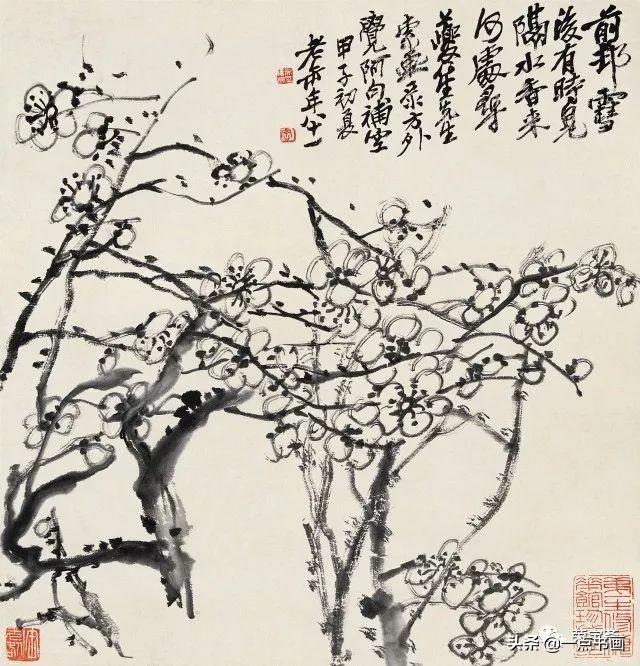 前邨雪
後有時見
隔水香来
何處尋
夔笙先生
索畫录方外
覺阿句補空
甲子初夏
老缶年八十一
头条 @一点书画